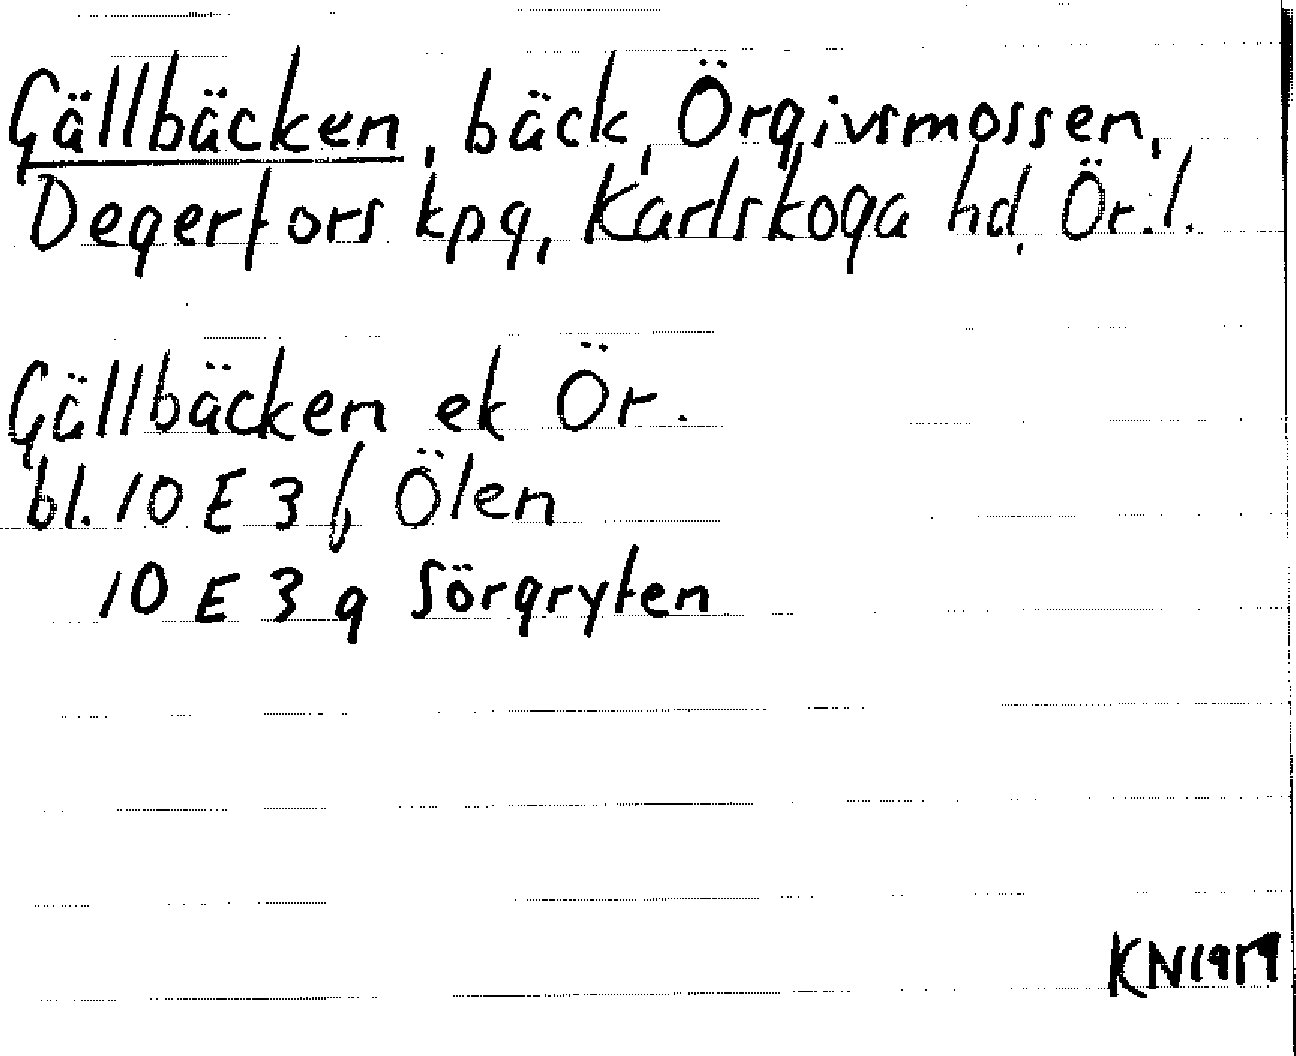 Gällbäcken, bäck, Örgivsmossen,
Degerfors kpg, Karlskoga hd, Ör.l.
Gällbäcken ek Ör.
bl. 10 E 3 f Ölen
10 E 3 g Sörgryten